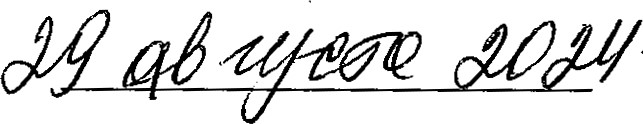 29 августа 2024